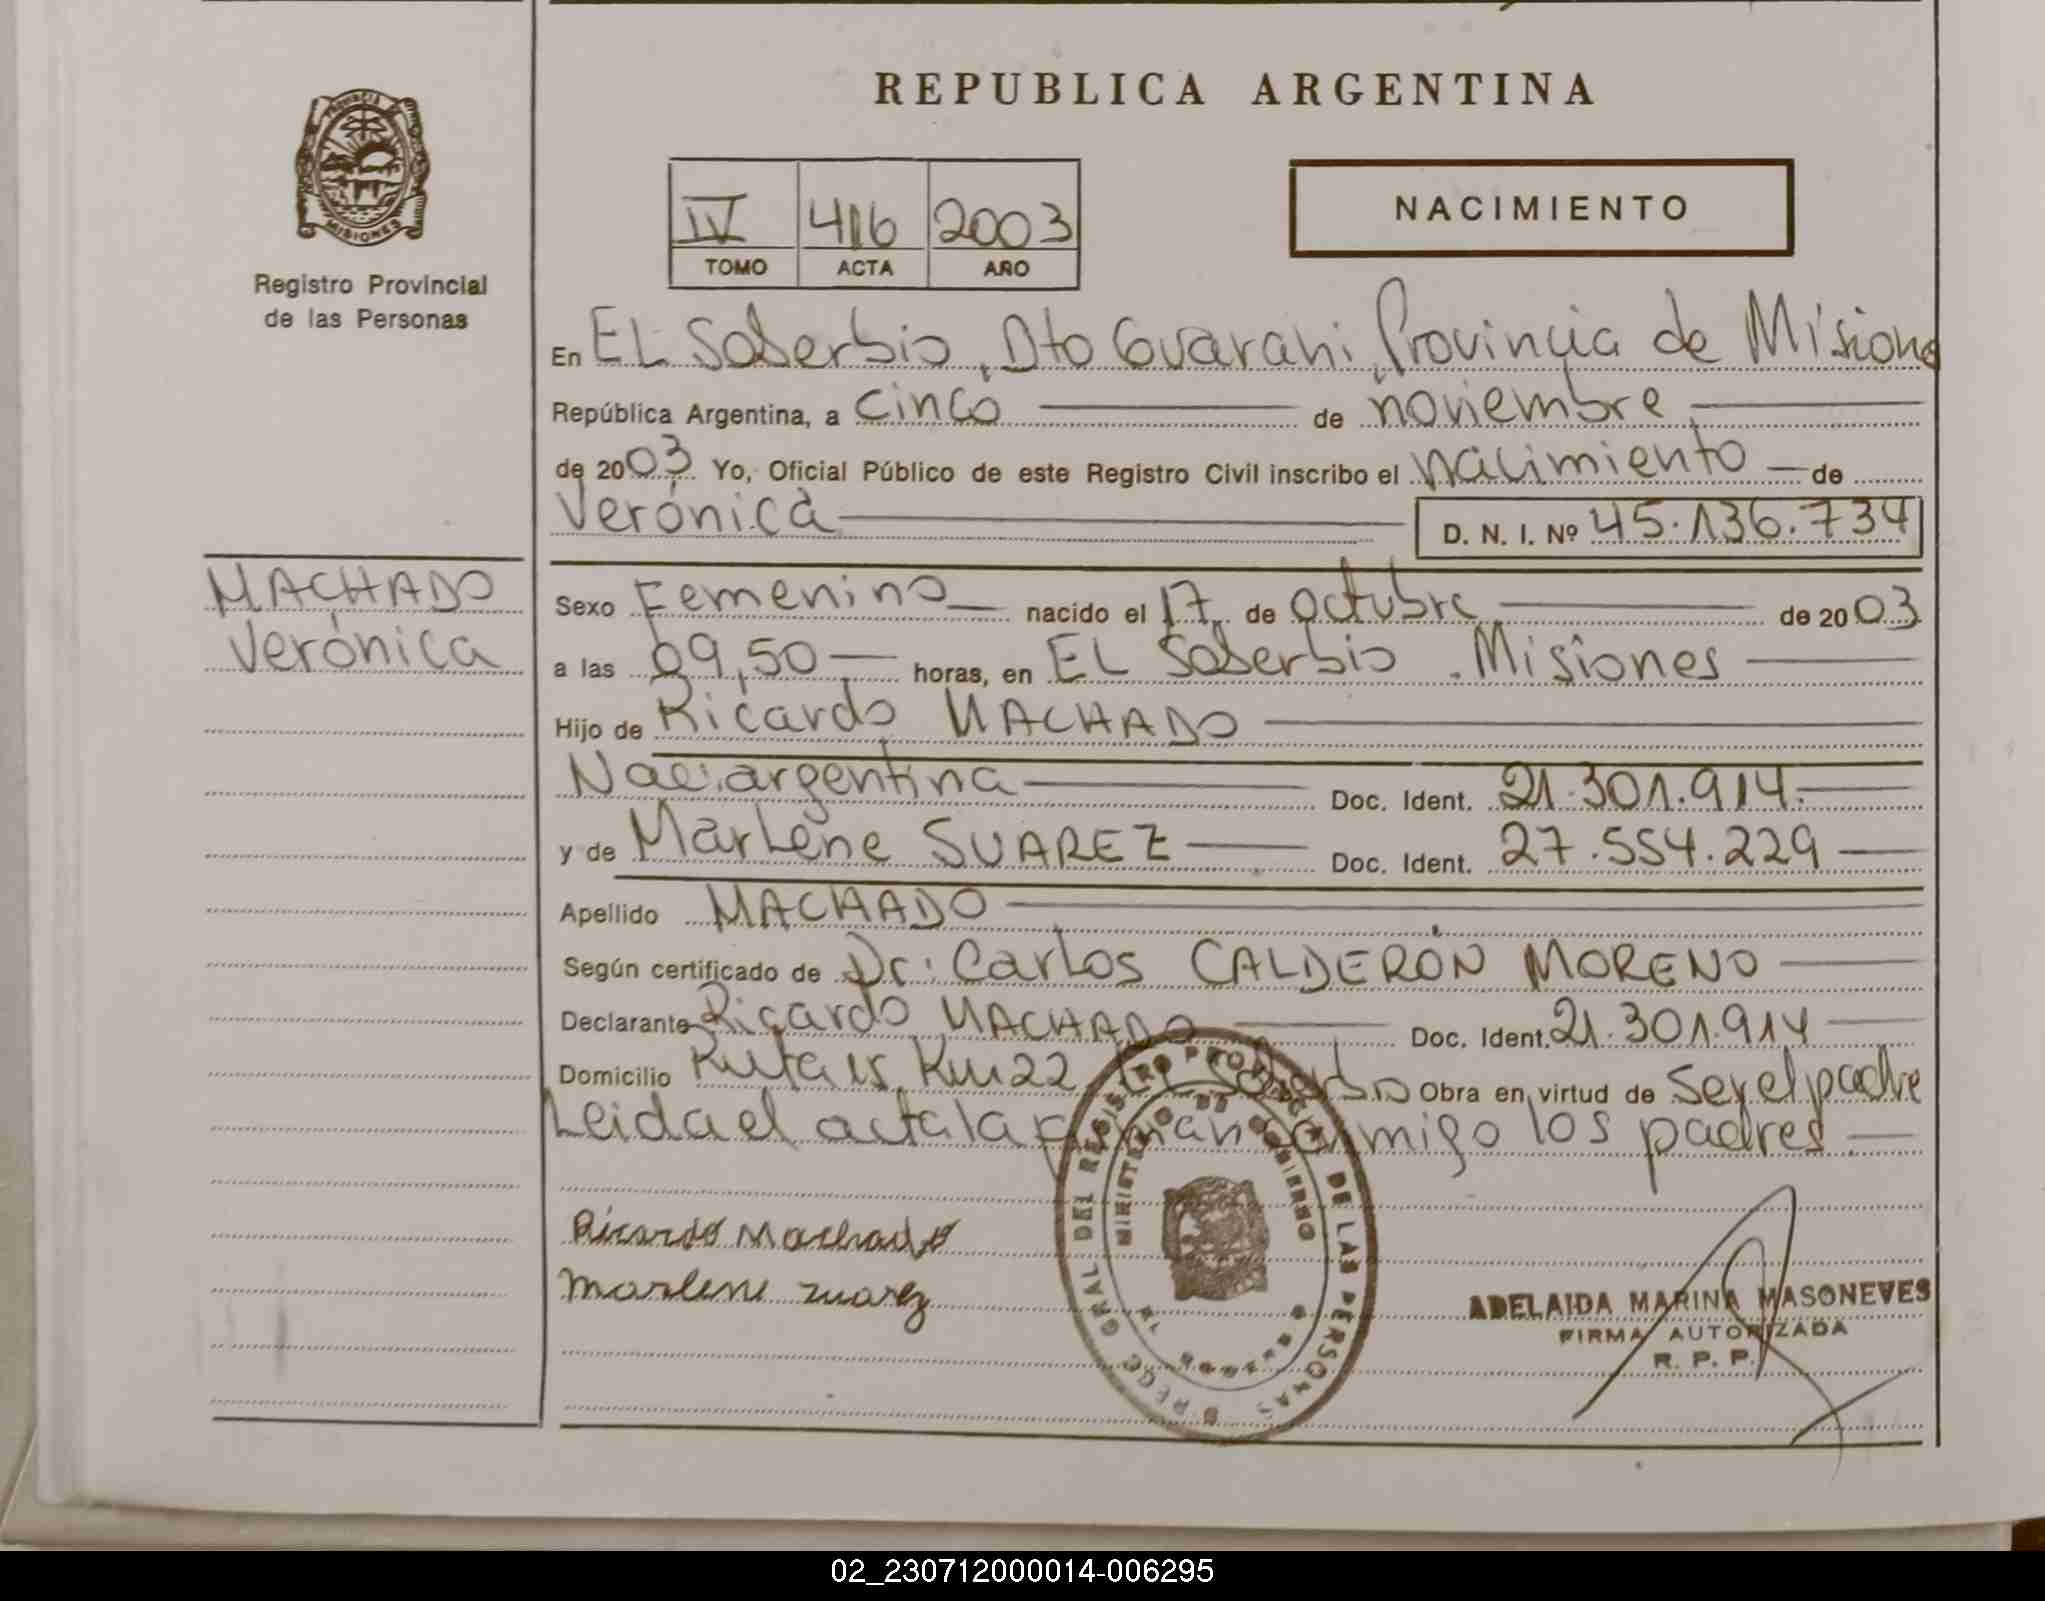 REPUBLICA ARGENTINA
PROVINCIA
MISIONES
Registro Provincial
de las Personas
IV 416 2003
TOMO ACTA AÑO
NACIMIENTO
En EL Soberbio, Dto Guaraní, Provincia de Misiones
República Argentina, a cinco de noviembre
de 2003 Yo, Oficial Público de este Registro Civil inscribo el nacimiento de
Verónica D. N. I. Nº 45.136.734
MACHADO
Verónica
Sexo Femenino nacido el 17 de octubre de 2003
a las 09,50 horas, en EL Soberbio . Misiones
Hijo de Ricardo MACHADO
Nac: argentina Doc. Ident. 21.301.914.
y de Marlene SUAREZ Doc. Ident. 27.554.229
Apellido MACHADO
Según certificado de Dr: Carlos CALDERÓN MORENO
Declarante Ricardo MACHADO Doc. Ident. 21.301.914
Domicilio Ruta 15 Km 22 El Soberbio Obra en virtud de ser el padre
Leida el acta la firman conmigo los padres
Ricardo Machado
Marlene zuarez
REGISTRO PROVINCIAL DE LAS PERSONAS
GRAL DEL
MINISTERIO DE GOBIERNO
ADELAIDA MARINA MASONEVES
FIRMA AUTORIZADA
R. P. P.
02_230712000014-006295